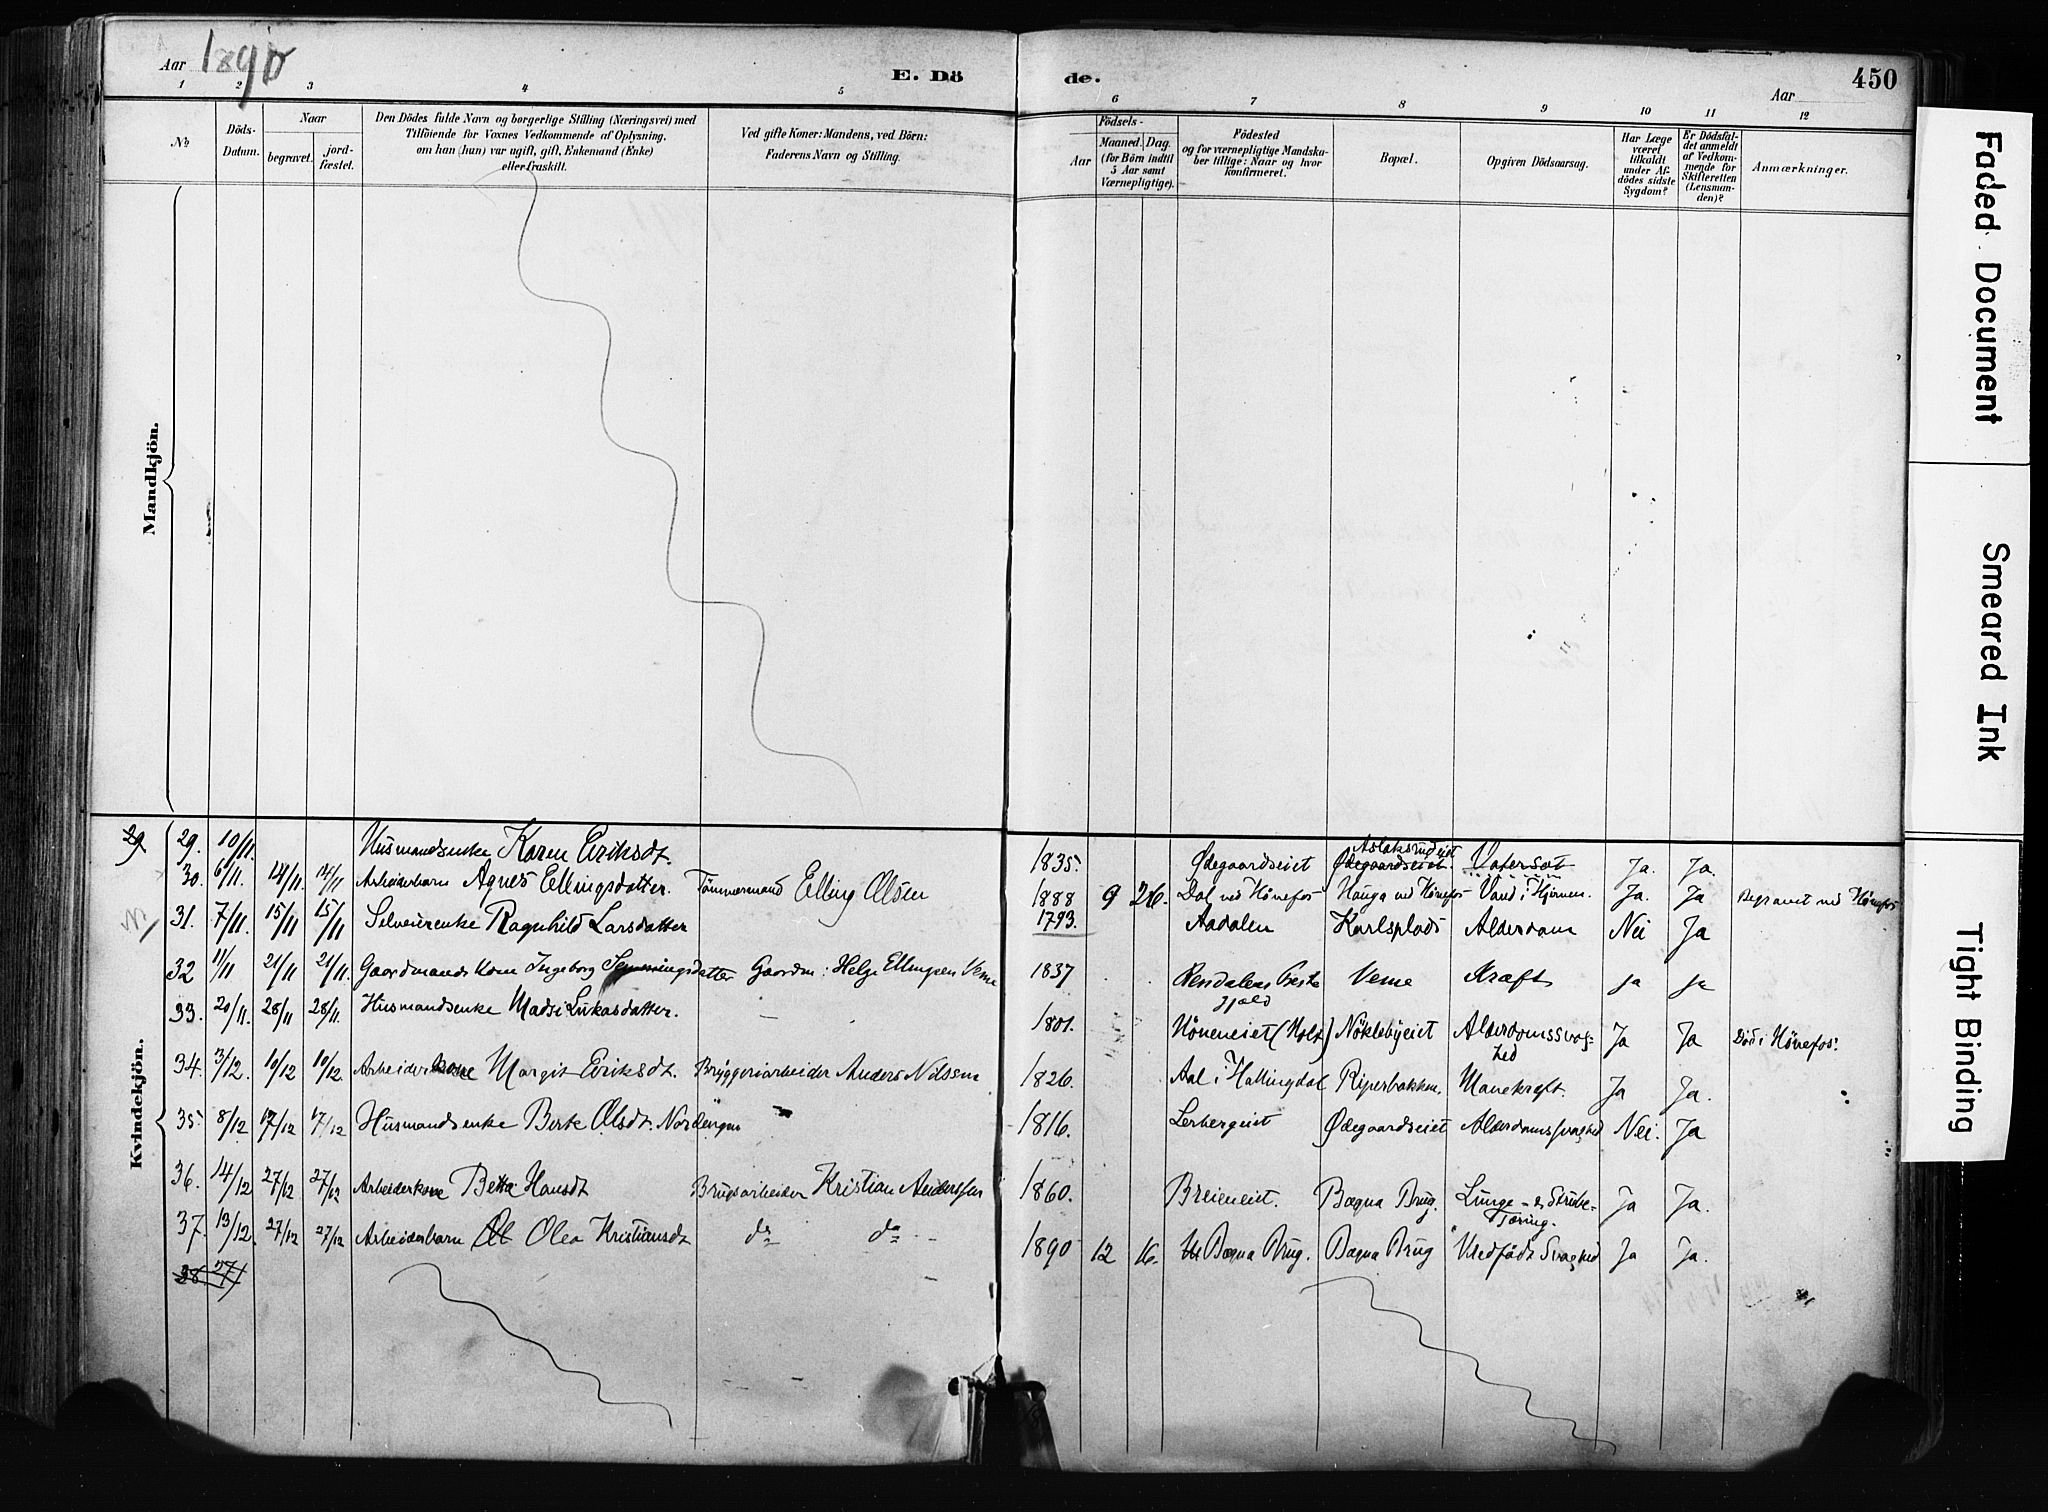 Aar 1890
E. Dö de.
Aar 450
1 2 3 4 5 6 7 8 9 10 11 12
No
Döds-Datum.
Naar
begravet.
jord-fæstet.
Den Dödes fulde Navn og borgerlige Stilling (Næringsvei) med
Tilföiende for Voxnes Vedkommende af Oplysning,
om han (hun) var ugift, gift, Enkemand (Enke)
eller fraskilt.
Ved gifte Koner: Mandens, ved Börn:
Faderens Navn og Stilling.
Födsels-
Aar
Maaned. Dag.
(for Börn indtil
5 Aar samt
Værnepligtige).
Födested
og for værnepligtige Mandska-
ber tillige: Naar og hvor
konfirmeret.
Bopæl.
Opgiven Dödsaarsag.
Har Læge
været
tilkaldt
under Af-
dödes sidste
Sygdom?
Er Dödsfal-
det anmeldt
af Vedkom-
mende for
Skifteretten
(Lensman-
den)?
Anmærkninger.
Mandkjön.
Kvindekjön.
29 29. 10/11. Husmandsenke Karen Eriksdt. 1835. Ødegaardseiet Aslaksrudeiet Ødegaardseiet Vatersot Ja. Ja.
30. 6/11. 14/11. 14/11 Arbeiderbarn Agnes Ellingsdatter. Tømmermand Elling Olsen 1888 9 26. Dal ved Hönefos Hauga ved Hönefos Vand i Hjernen. Ja. Ja Begravet ved Hönefos
31. 7/11 15/11 15/11 Selveierenke Ragnhild Larsdatter 1793. Aadalen Karlsplads Alderdom Nei Ja
32 11/11 21/11 21/11. Gaardmands Kone Ingeborg Gaardm: Helge Ellingsen Veme 1837 Rendalens Præstegjæld Veme Kræft Ja Ja
33. 20/11. 28/11 28/11. Husmandsenke Madsi Lukasdatter. 1801. Höneneiet (Holt) Nöklebyeiet Alderdomssvaghed Ja Ja Död i Hönefos.
34. 3/12. 10/12 10/12. Arbeiderkone Margit Eriksdt. Bryggeriarbeider Anders Nilssen 1826. Aal i Hallingdal Riperbakken. Mavekræft. Ja Ja.
35 8/12 17/12 17/12 Husmandsenke Berte Olsdt. Nordengen 1816. Lerbergeiet Ødegaardseiet Alderdomssvaghed Nei. Ja
36. 14/12 27/12 27/12 Arbeiderkone Hansdt Brugsarbeider Kristian Anderssen 1860. Breieneiet. Bægna Brug. Lunge- & Strube-Tæring. Ja Ja.
37. 13/12. 27/12 27/12 Arbeiderbarn Olea Kristiansdt do do 1890 12 16. Bægna Brug. Bægna Brug Medfödt Svaghed Ja Ja.
38 27/
Faded Document
Smeared Ink
Tight Binding